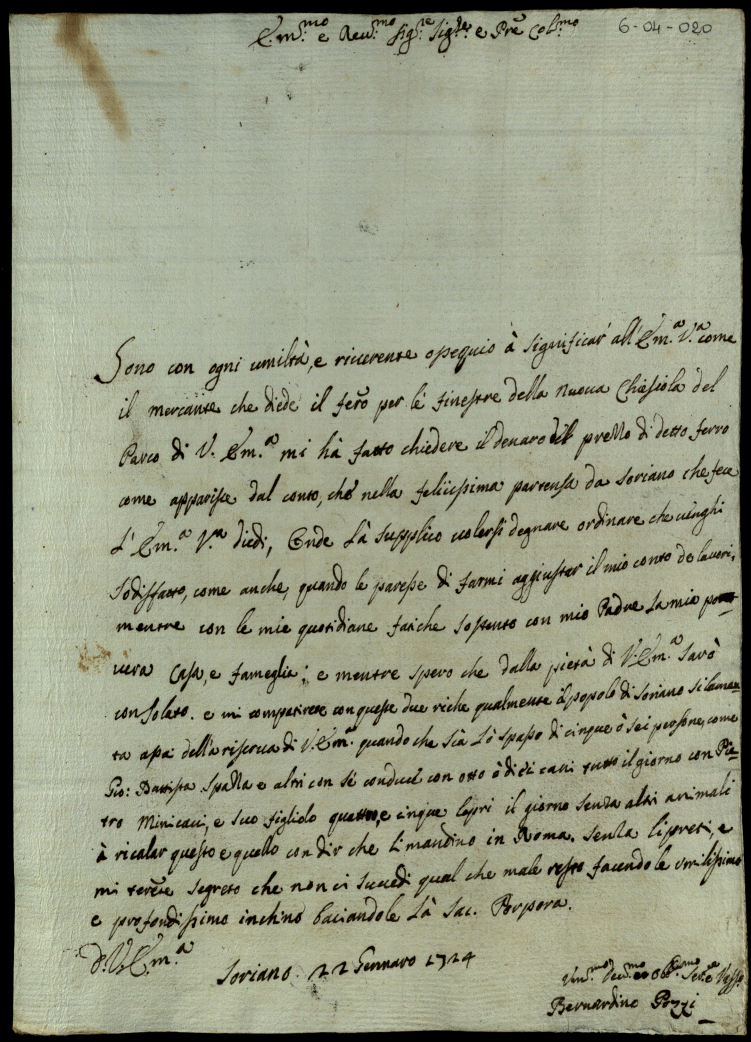 E.mo e Reu.mo Sig.re Sig.re e Pne Col.mo
6-04-020
Sono con ogni umiltà, e riuerente osequio à significar' all'Em.a V.a come
il mercante che diede il fero per le finestre della nuoua Chiesiola del
Parco di V. Em.a mi hà fatto chiedere il denaro del prezzo di detto ferro
come apparisce dal conto, che nella felicissima partenza da Soriano che fece
L'Em.a V.ra diedi, Onde Là supplico uolersi degnare ordinare che uinghi
sodisfatto, come anche, quando le paresse di farmi aggiustar il mio conto de lauori,
mentre con le mie quotidiane fatiche sostento con mio Padre La mia po-
uera Casa, e fameglia; e mentre spero che dalla pietà di V. Em.a sarò
consolato. e mi compatirete con queste due riche qualmente il popolo di Soriano si lamen-
ta asai della riserua di V. Em.a quando che sià Lò spasso di cinque ò sei persone, come
Gio: Battista Spalla e altri con sé conduci con otto ò dieci cani tutto il giorno con Pie-
tro Minicaci, e suo figliolo quattro, e cinque lepri il giorno senza altri animali
à ricalar questo e quello con dir che li mandino in Roma. senza li preti, e
mi terete segreto che non ci succedi qual che male resto facendole umilissimo
e profondissimo inchino baciandole Là Sac. Porpora.
D. V. Em.a
Soriano 22 Gennaro 1724
Um.mo Deu.mo et Obl.mo Ser.e Vass.o
Bernardino Pozzi